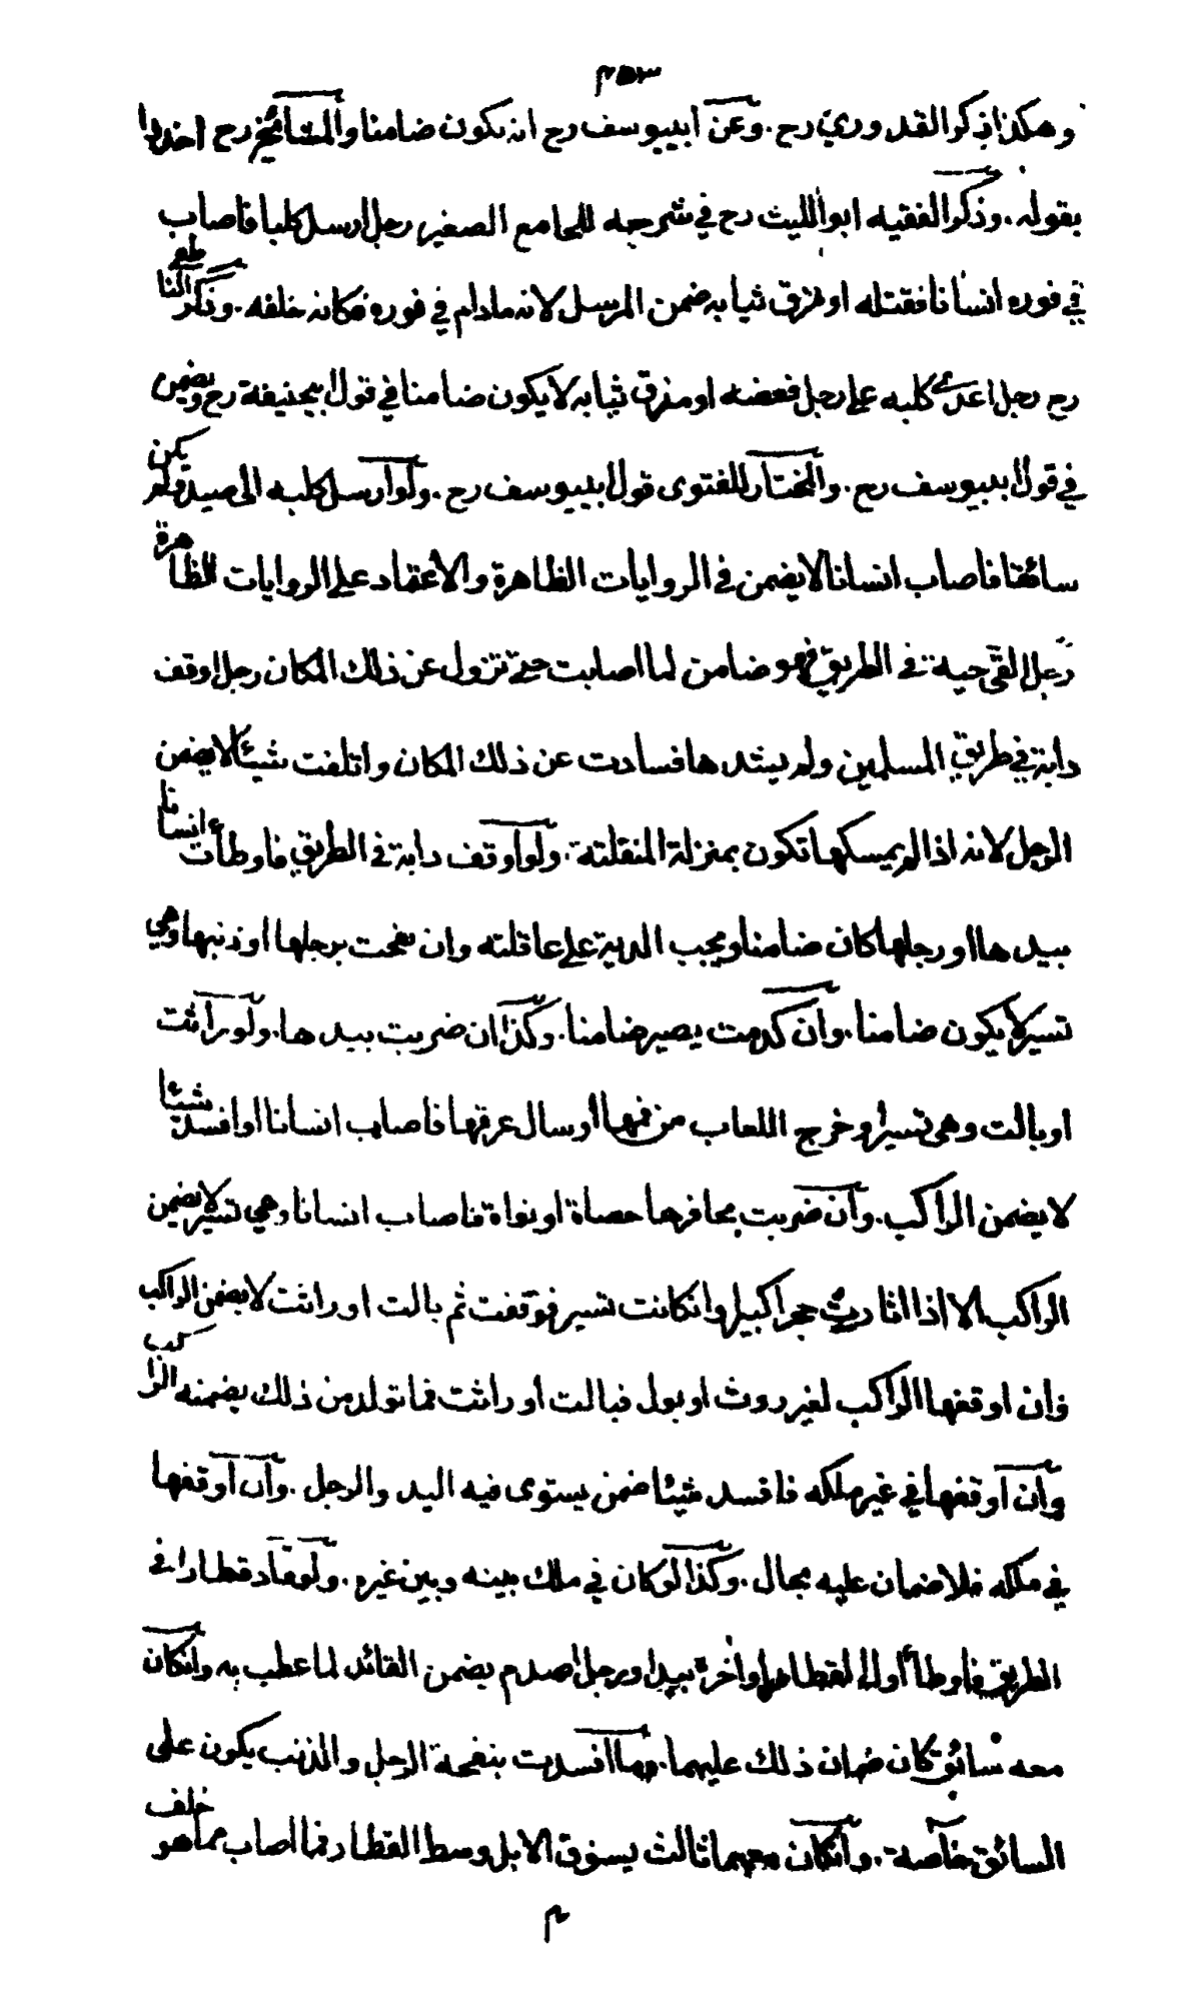 ٤٥٣
وهكذا ذكر القدوري رح. وعن ابييوسف رح انه يكون ضامنا والمشائخ رح اخذوا
بقوله. وذكر الفقيه ابو الليث رح في شرحه للجامع الصغير رجل ارسل كلبا فاصاب
في فوره انسانا فقتله او مزق ثيابه ضمن المرسل لانه مادام في فوره فكانه خلفه. وذكر الناطفي
رح رجل اغرى كلبه على رجل فعضه او مزق ثيابه لا يكون ضامنا في قول ابيحنيفة رح ويضمن
في قول ابييوسف رح. والمختار للفتوى قول ابييوسف رح. ولو ارسل كلبه الى صيد ولم يكن
سائقا فاصاب انسانا لا يضمن في الروايات الظاهرة والاعتماد على الروايات الظاهرة
رجل القى حية في الطريق فهو ضامن لما اصابت حتى تزول عن ذلك المكان رجل اوقف
دابة في طريق المسلمين ولم يشدها فسارت عن ذلك المكان واتلفت شيئا لا يضمن
الرجل لانه اذا لم يمسكها تكون بمنزلة المنفلتة. ولو اوقف دابة في الطريق فاوطأت انسانا
بيدها او رجلها كان ضامنا ويجب الدية على عاقلته وان نفحت برجلها او ذنبها وهي
تسير لا يكون ضامنا. وان كدمت يصير ضامنا. وكذا ان ضربت بيدها. ولو راثت
او بالت وهي تسير او خرج اللعاب من فمها او سال عرقها فاصاب انسانا او افسد شيئا
لا يضمن الراكب. وان ضربت بحافرها حصاة او نواة فاصاب انسانا وهي تسير لا يضمن
الراكب الا اذا اثارت حجرا كبيرا وانكانت تسير فوقفت ثم بالت او راثت لا يضمن الراكب
وان اوقفها الراكب لغير روث او بول فبالت او راثت فما تولد من ذلك يضمنه الراكب
وان اوقفها في غير ملكه فافسد شيئا ضمن يستوى فيه اليد والرجل. وان اوقفها
في ملكه فلا ضمان عليه بحال. وكذا لو كان في ملك بينه وبين غيره. ولو قاد قطارا في
الطريق فاوطأ اول القطار او اخره بيد او رجل او صدم يضمن القائد لما عطب به وانكان
معه سائق كان ضمان ذلك عليهما. وما افسدت بنفحة الرجل والذنب يكون على
السائق خاصة. وانكان معهما ثالث يسوق الابل وسط القطار فما اصاب مما هو خلف